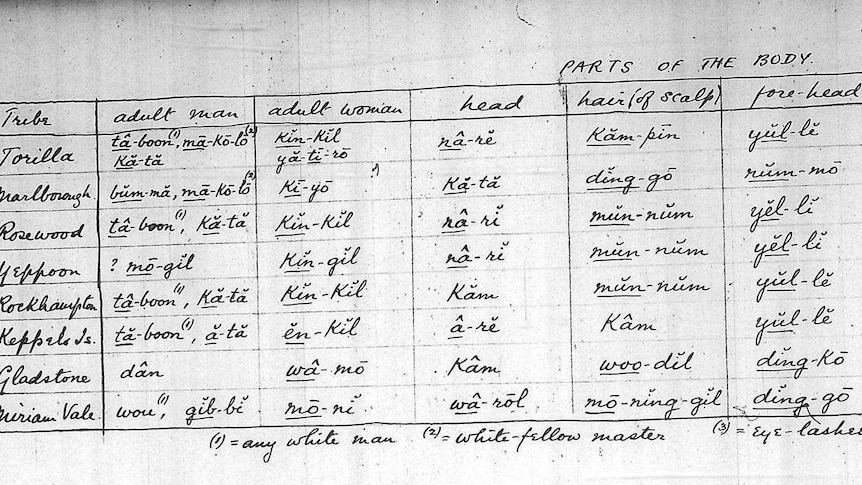 PARTS OF THE BODY.
Tribe adult man adult woman head hair (of scalp) fore-head
Torilla tâ-boon(1), mā-kō-lō(2) kĭn-kĭl nâ-rĕ kăm-pīn yŭl-lĕ
kă-tă yă-tī-rō
Marlborough bŭm-mă, mă-kō-lō(2) kī-yō kă-tă dĭng-gō nŭm-mō
Rosewood tâ-boon(1), kă-tă kĭn-kĭl nâ-rĭ mŭn-nŭm yĕl-lĭ
Yeppoon ? mō-gĭl kĭn-gĭl nâ-rĭ mŭn-nŭm yĕl-lĭ
Rockhampton tâ-boon(1), kă-tă kĭn-kĭl kăm mŭn-nŭm yŭl-lĕ
Keppels Is. tă-boon(1), ă-tă ĕn-kĭl â-rĕ kâm yŭl-lĕ
Gladstone dân wâ-mō kâm woo-dĭl dĭng-kō
Miriam Vale wou(1), gĭb-bĭ mō-nĭ wâ-rŏl mō-nĭng-gĭl dĭng-gō
(1) = any white man (2) = white-fellow master (3) = eye-lashes